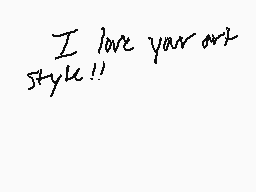 I love your art
style!!